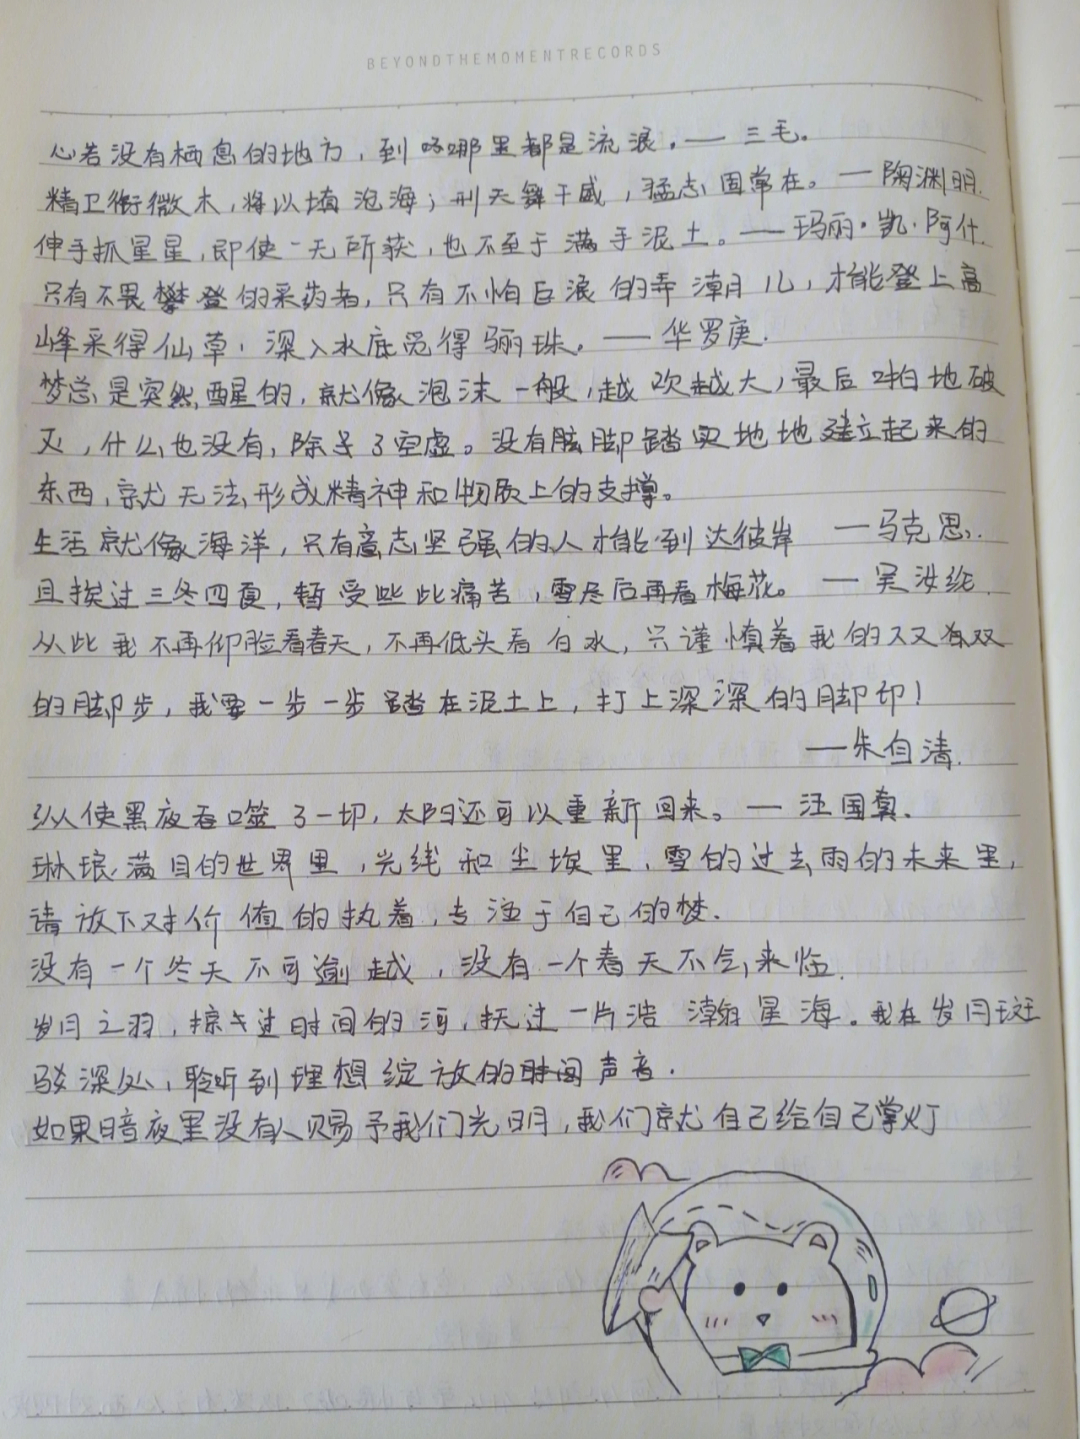 BEYONDTHEMOMENTRECORDS
心若没有栖息的地方，到哪里都是流浪。— 三毛。
精卫衔微木，将以填沧海；刑天舞干戚，猛志固常在。— 陶渊明.
伸手抓星星，即使一无所获，也不至于满手泥土。— 玛丽·凯·阿什.
只有不畏攀登的采药者，只有不怕巨浪的弄潮儿，才能登上高
峰采得仙草，深入水底觅得骊珠。— 华罗庚.
梦总是突然醒的，就像泡沫一般，越吹越大，最后啪地破
灭，什么也没有，除了空虚。没有脚踏实地地建立起来的
东西，就无法形成精神和物质上的支撑。
生活就像海洋，只有意志坚强的人才能到达彼岸 — 马克思.
且挨过三冬四夏，暂受些此痛苦，雪尽后再看梅花。— 吴汝纶.
从此我不再仰脸看春天，不再低头看白水，只谨慎着我的双双
的脚步，我要一步一步踏在泥土上，打上深深的脚印！
—朱自清.
纵使黑夜吞噬了一切，太阳还可以重新回来。— 汪国真.
琳琅满目的世界里，光线和尘埃里，雪的过去雨的未来里，
请放下对价值的执着，专注于自己的梦.
没有一个冬天不可逾越，没有一个春天不会来临.
岁月之羽，掠过时间的河，抚过一片浩瀚星海。我在岁月斑
驳深处，聆听到理想绽放的声音.
如果暗夜里没有人赐予我们光明，我们就自己给自己掌灯